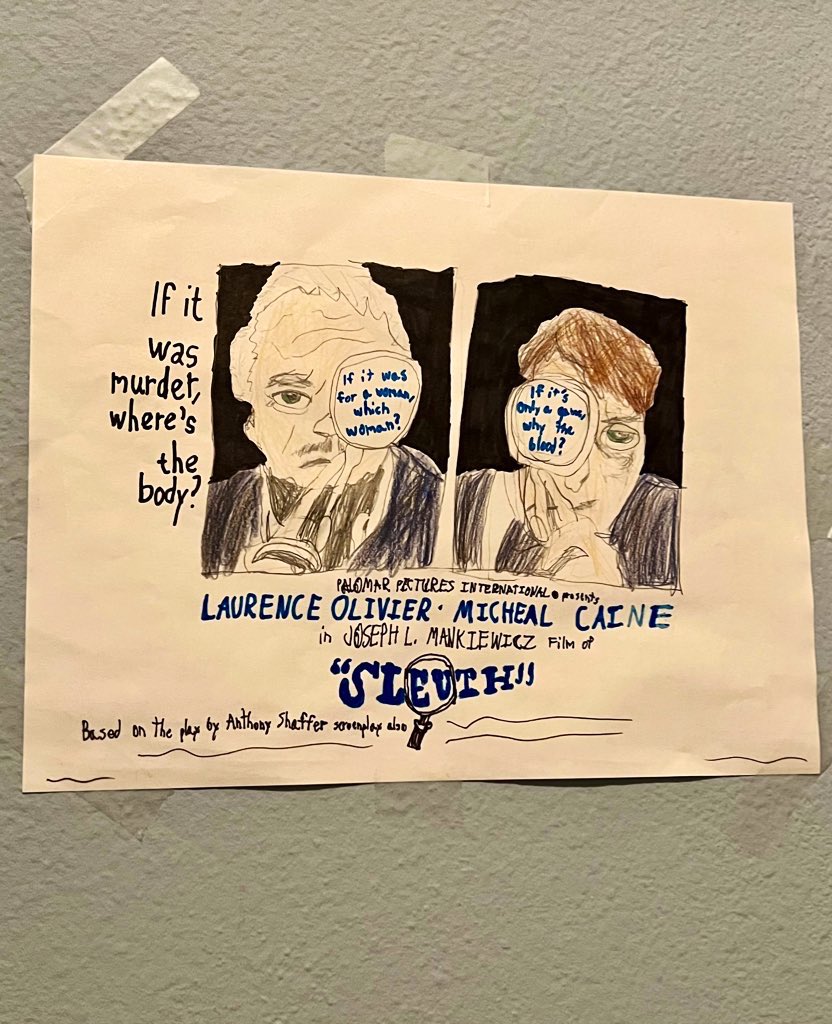 If it
was
murder,
where's
the
body?
If it was
for a woman,
which
woman?
If it's
only a game,
why the
blood?
PALOMAR PICTURES INTERNATIONAL presents
LAURENCE OLIVIER · MICHEAL CAINE
in JOSEPH L. MANKIEWICZ Film of
"SLEUTH"
Based on the play by Anthony Shaffer screenplay also